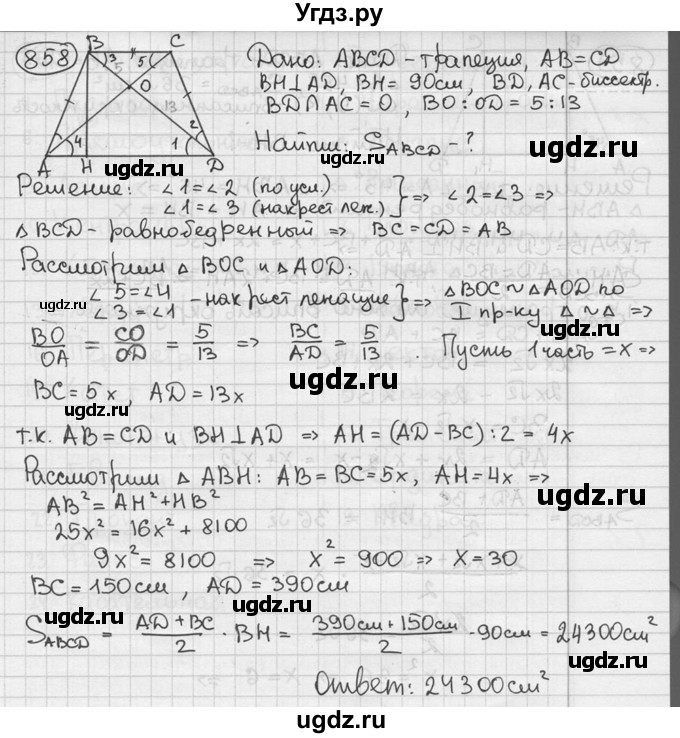 Угдз.ру
858
B C
3 5 5
O
13
2
4 1
A H D
Дано: ABCD - трапеция, AB = CD
BH⊥AD, BH = 90см, BD, AC - биссектр.
BD∩AC = O, BO : OD = 5 : 13
Найти: S_ABCD - ?
ugdz.ru ugdz.ru
Решение: ∠1 = ∠2 (по усл.) } => ∠2 = ∠3 =>
∠1 = ∠3 (накрест леж.)
△BCD - равнобедренный => BC = CD = AB
ugdz.ru
Рассмотрим △BOC и △AOD:
∠5 = ∠4 - накрест лежащие } => △BOC ~ △AOD по
∠3 = ∠1 I пр-ку △ ~ △ =>
ugdz.ru ugdz.ru
BO/OA = CO/OD = 5/13 => BC/AD = 5/13. Пусть 1 часть = x =>
ugdz.ru
BC = 5x, AD = 13x
ugdz.ru
т.к. AB = CD и BH⊥AD => AH = (AD - BC) : 2 = 4x
Рассмотрим △ABH: AB = BC = 5x, AH = 4x =>
ugdz.ru
AB² = AH² + HB²
25x² = 16x² + 8100
9x² = 8100 => x² = 900 => x = 30
ugdz.ru
BC = 150см, AD = 390см
ugdz.ru
S_ABCD = (AD + BC)/2 · BH = (390см + 150см)/2 · 90см = 24300см²
ugdz.ru
Ответ: 24300см²
ugdz.ru
ugdz.ru